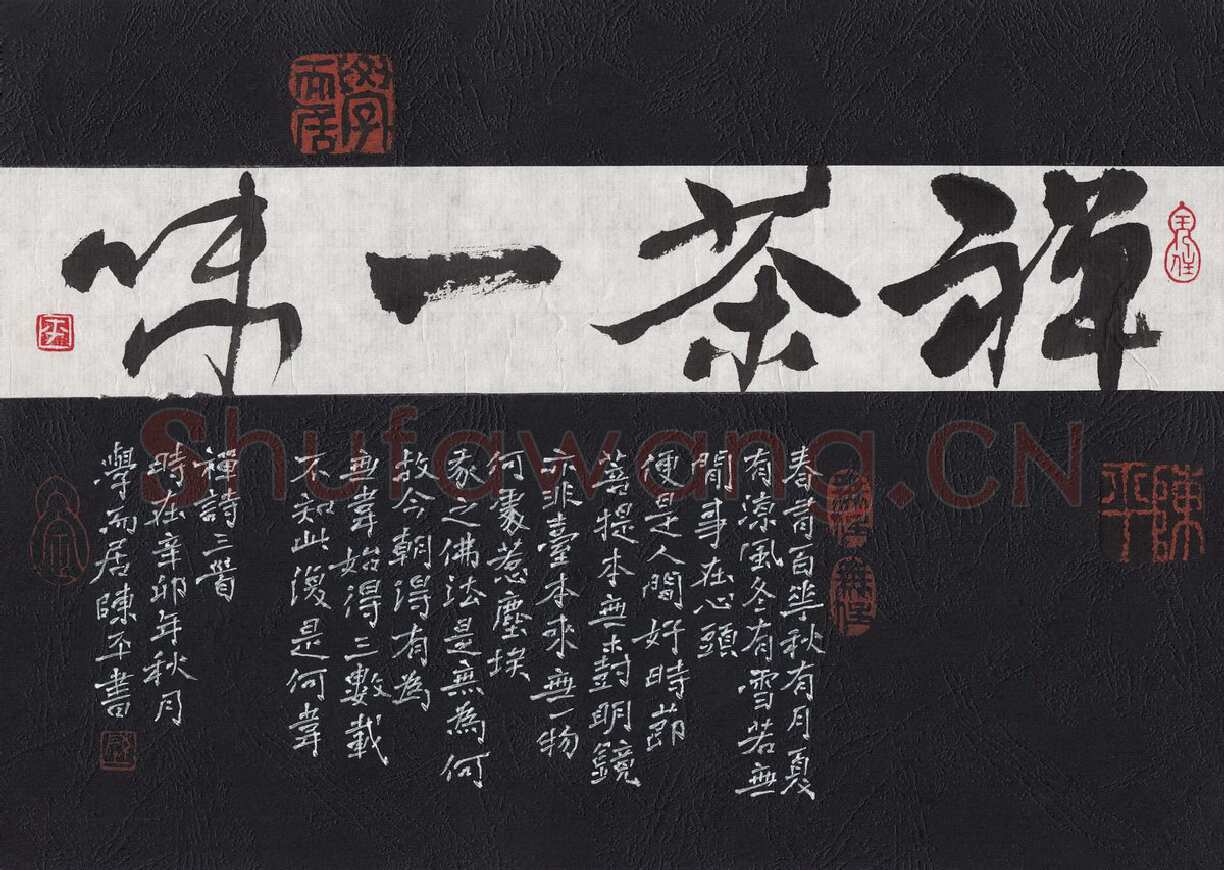 禪茶一味
學而居
平
春有百華秋有月夏
有涼風冬有雪若無
閒事在心頭
便是人間好時節
菩提本無樹明鏡
亦非臺本來無一物
何處惹塵埃
之佛法是無為何
故今朝得有為
無韋始得三數載
不知此復是何韋
禪詩三首
時在辛卯年秋月
學而居陳平書
陳平
Shufawang.CN